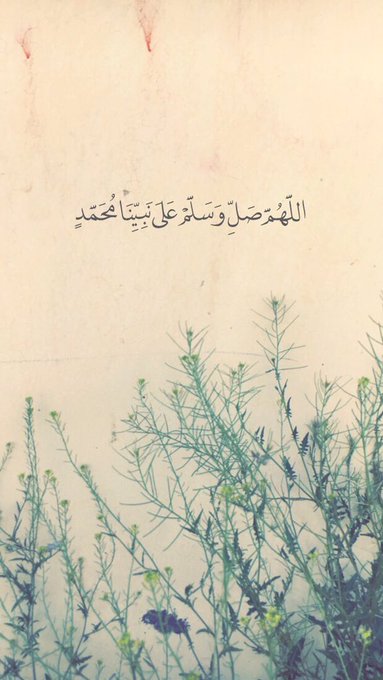 اللّهُمّ صَلِّ وَسَلّمْ عَلَى نَبِيِّنَا مُحَمّدٍ